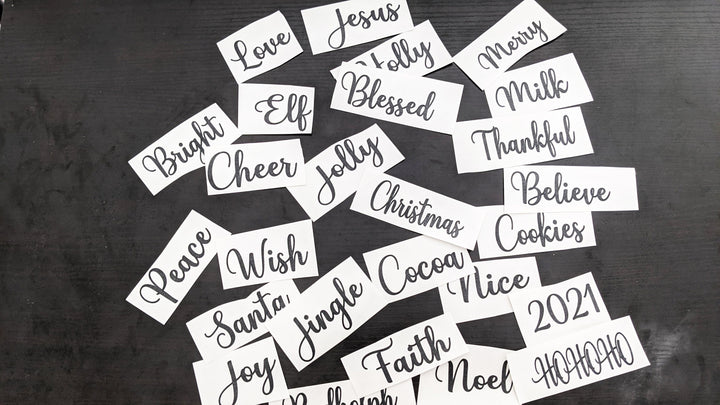 Love
Jesus
Holly
Merry
Elf
Blessed
Milk
Bright
Cheer
Jolly
Thankful
Believe
Christmas
Cookies
Peace
Wish
Cocoa
Nice
Santa
Jingle
2021
Joy
Faith
Noel
HOHOHO